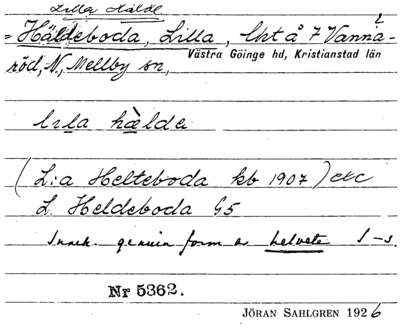 Lilla Hälde
= Häldeboda, Lilla, lht å 7 Vanna-
röd, N, Mellby sn,
Västra Göinge hd, Kristianstad län
lila hælda
(L:a Helteboda kb 1907) etc
L. Heldeboda G5
genuin form av helvete S-s.
Nr 5362.
JÖRAN SAHLGREN 1926